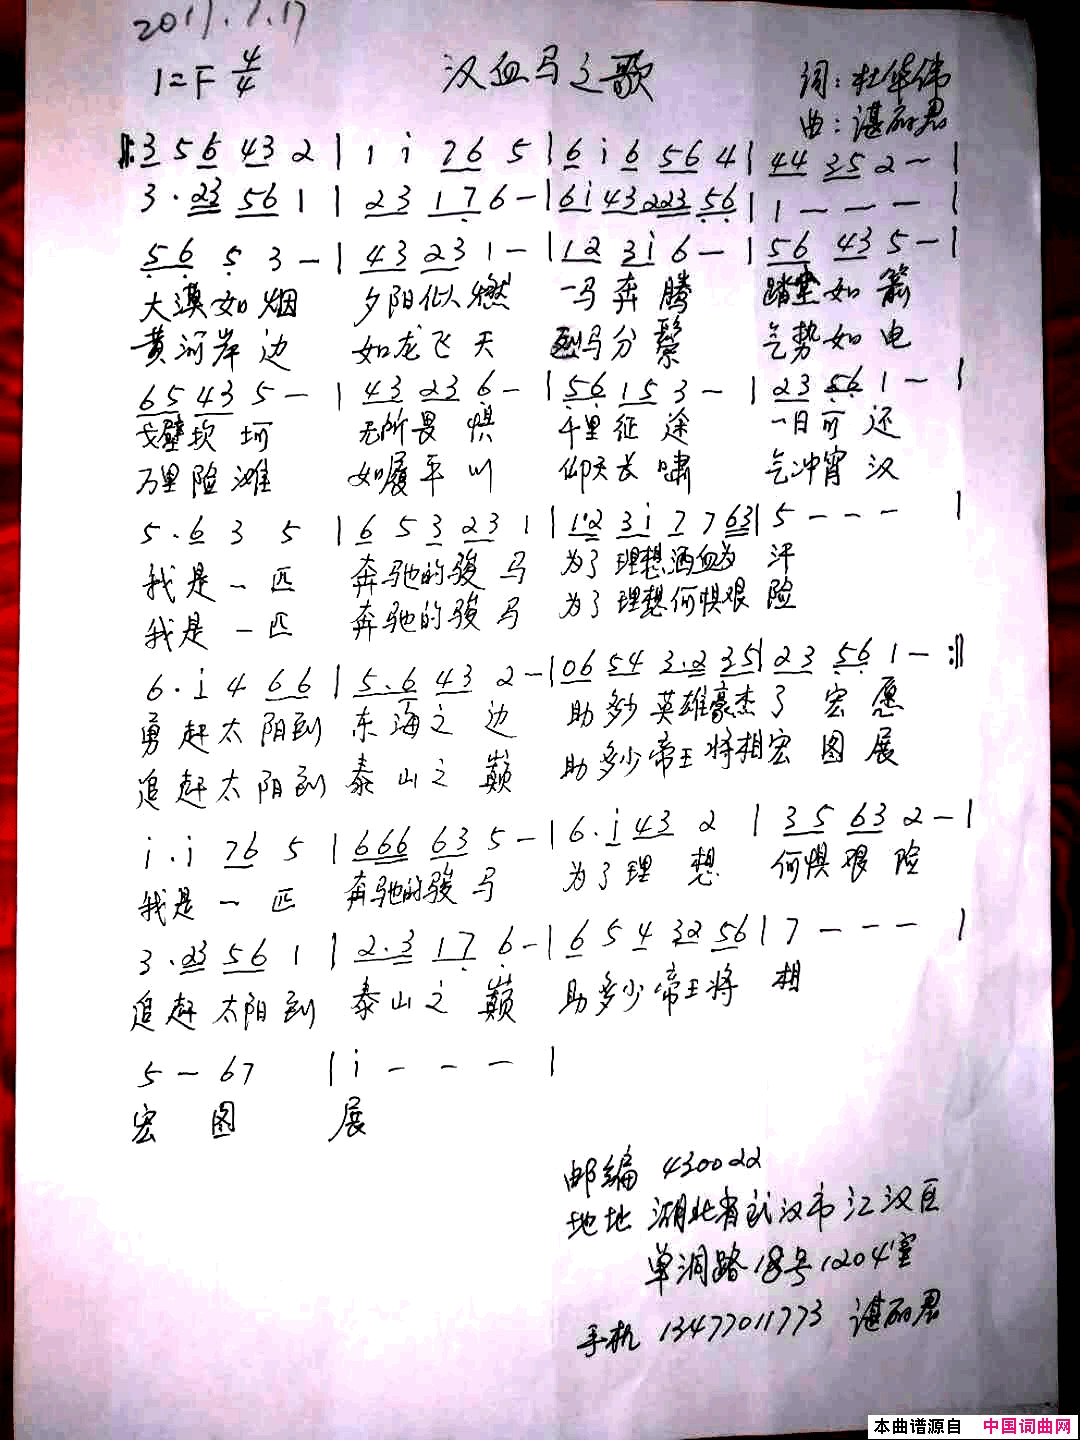 2017.7.17
1=F 4/4 汉血马之歌 词：杜华伟
曲：谌丽君
‖: 3 5 6 4 3 2 | 1 i 7 6 5 | 6 i 6 5 6 4 | 4 4 3 5 2 — |
3 · 2 3 5 6 1 | 2 3 1 7 6 — | 6 i 4 3 2 2 3 5 6 | 1 — — — |
5 6 5 3 — | 4 3 2 3 1 — | 1 2 3 i 6 — | 5 6 4 3 5 — |
大漠如烟 夕阳似燃 一马奔腾 如箭
黄河岸边 如龙飞天 马分鬃 气势如电
6 5 4 3 5 — | 4 3 2 3 6 — | 5 6 1 5 3 — | 2 3 5 6 1 — |
戈壁坎坷 无所畏惧 千里征途 一日可还
万里险滩 如履平川 仰天长啸 气冲霄汉
5 · 6 3 5 | 6 5 3 2 3 1 | 1 · 2 3 i 7 7 6 3 | 5 — — — |
我是一匹 奔驰的骏马 为了理想洒血为汗
我是一匹 奔驰的骏马 为了理想何惧艰险
6 · i 4 6 6 | 5 · 6 4 3 2 — | 0 6 5 4 3 · 2 3 5 | 2 3 5 6 1 — :‖
勇赶太阳到 东海之边 助多少英雄豪杰了宏愿
追赶太阳到 泰山之巅 助多少帝王将相宏图展
i · i 7 6 5 | 6 6 6 6 3 5 — | 6 · i 4 3 2 | 3 5 6 3 2 — |
我是一匹 奔驰的骏马 为了理想 何惧艰险
3 · 2 3 5 6 1 | 2 · 3 1 7 6 — | 6 5 4 3 2 5 6 | 7 — — — |
追赶太阳到 泰山之巅 助多少帝王将相
5 — 6 7 | i — — — |
宏图展
邮编 430022
地址 湖北省武汉市江汉区
单洞路18号1204室
手机 13477011773 谌丽君
本曲谱源自 中国词曲网